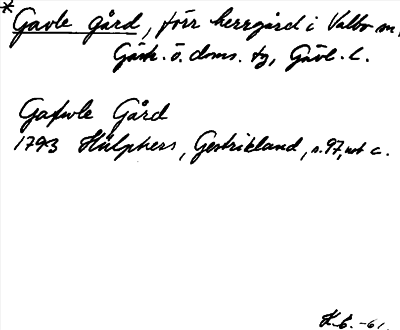 *Gavle gård, förr herrgård i Valbo sn,
Gästr. ö. doms. tg, Gävl. l.
Gafwle Gård
1793 Hülphers, Gestrikland, s. 97, not c.
K.E. -61.